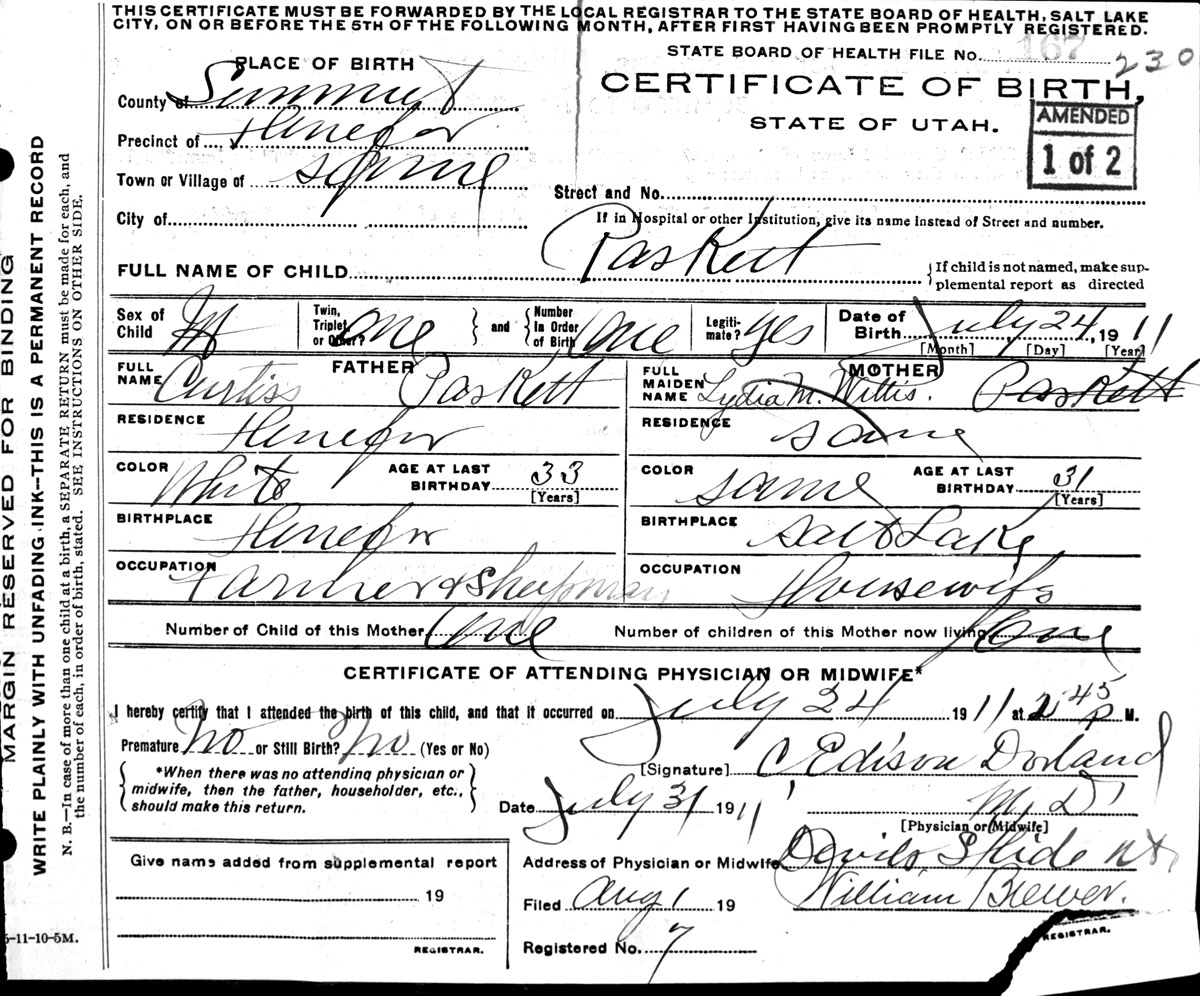 THIS CERTIFICATE MUST BE FORWARDED BY THE LOCAL REGISTRAR TO THE STATE BOARD OF HEALTH, SALT LAKE
CITY, ON OR BEFORE THE 5TH OF THE FOLLOWING MONTH, AFTER FIRST HAVING BEEN PROMPTLY REGISTERED.
STATE BOARD OF HEALTH FILE No. 167 230
PLACE OF BIRTH
CERTIFICATE OF BIRTH,
STATE OF UTAH.
AMENDED
1 of 2
County of Summit
Precinct of Henefer
Town or Village of same
Street and No.
City of
If in Hospital or other Institution, give its name instead of Street and number.
FULL NAME OF CHILD Paskett
If child is not named, make sup-
plemental report as directed
Sex of Child M Twin, Triplet or Other? One and Number In Order of Birth One Legiti-mate? yes Date of Birth July 24, 1911
[Month] [Day] [Year]
FATHER
FULL NAME Curtiss Paskett
RESIDENCE Henefer
COLOR White AGE AT LAST BIRTHDAY 33 [Years]
BIRTHPLACE Henefer
OCCUPATION Farmer & Sheepman
MOTHER
FULL MAIDEN NAME Lydia M. Willis. Paskett
RESIDENCE same
COLOR same AGE AT LAST BIRTHDAY 31 [Years]
BIRTHPLACE Salt Lake
OCCUPATION Housewife
Number of Child of this Mother One Number of children of this Mother now living One
CERTIFICATE OF ATTENDING PHYSICIAN OR MIDWIFE*
I hereby certify that I attended the birth of this child, and that it occurred on July 24 1911 at 2 45 P M.
Premature No or Still Birth? No (Yes or No)
*When there was no attending physician or
midwife, then the father, householder, etc.,
should make this return.
[Signature] C Edison Dorland
Date July 31 1911 M. D.
[Physician or Midwife]
Give name added from supplemental report
19
REGISTRAR.
Address of Physician or Midwife Devils Slide Ut
Filed Aug 1 19 William Brewer.
REGISTRAR.
Registered No. 7
MARGIN RESERVED FOR BINDING
WRITE PLAINLY WITH UNFADING INK—THIS IS A PERMANENT RECORD
N. B.—In case of more than one child at a birth, a SEPARATE RETURN must be made for each, and
the number of each, in order of birth, stated. SEE INSTRUCTIONS ON OTHER SIDE.
5-11-10-5M.